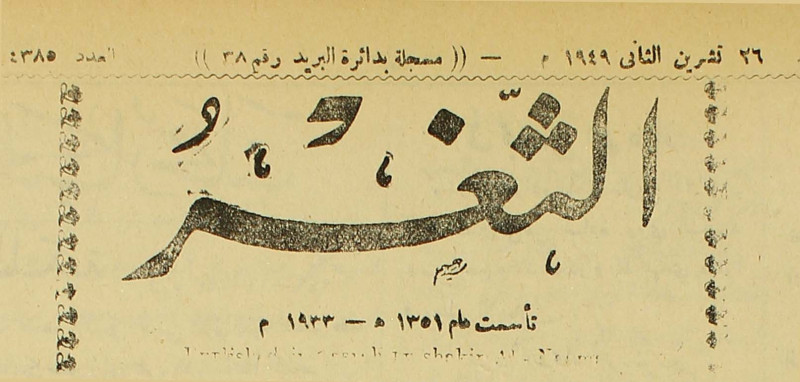 ٢٦ تشرين الثاني ١٩٤٩ م — (( مسجلة بدائرة البريد رقم ٣٨ )) العدد ٤٣٨٥
الثَّغْرُ
رحيم
تأسست عام ١٣٥١ ه — ١٩٣٣ م